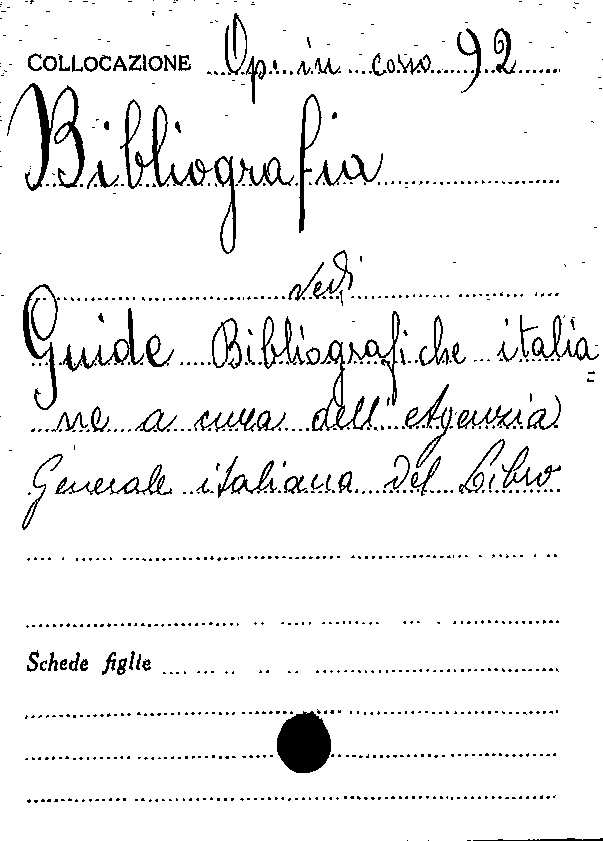 COLLOCAZIONE Op. in corso 92
Bibliografia
vedi
Guide Bibliografiche italia=
ne a cura dell'Agenzia
Generale italiana del Libro
Schede figlie